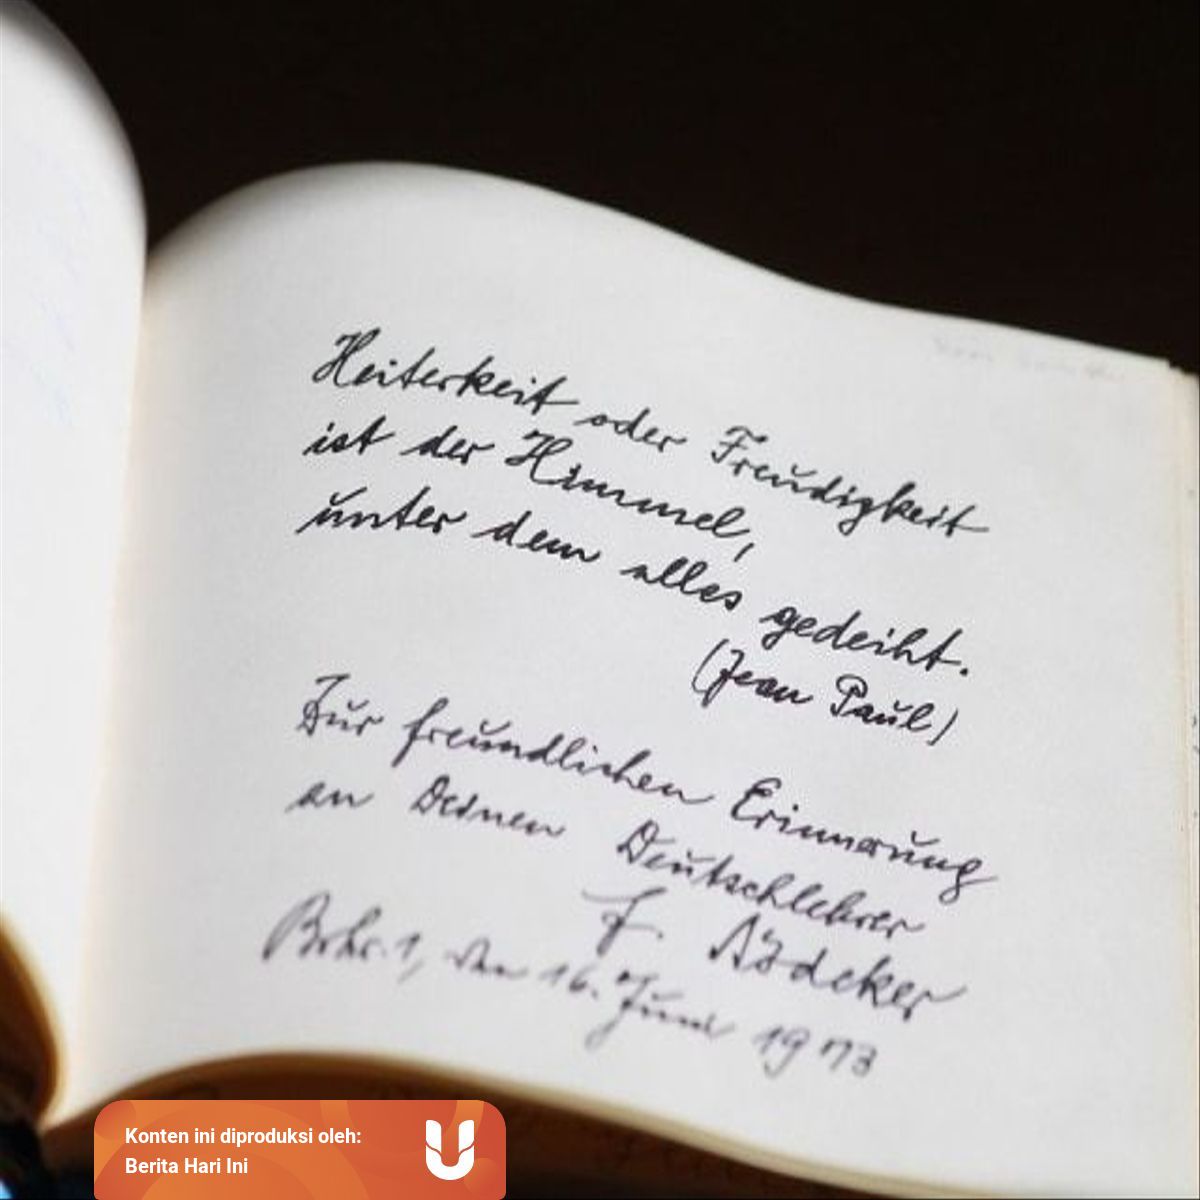 Heiterkeit oder Freudigkeit
ist der Himmel,
unter dem alles gedeiht.
(Jean Paul)
Zur freundlichen Erinnerung
an Deinen Deutschlehrer
F.
den 16. Juni 1973
Konten ini diproduksi oleh:
Berita Hari Ini